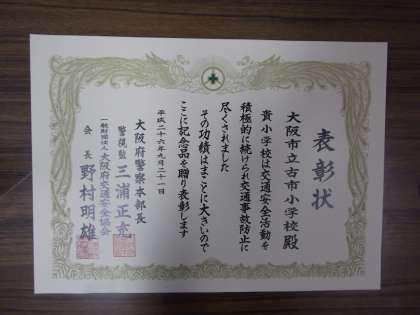 表彰状
大阪市立古市小学校殿
貴小学校は交通安全活動を
積極的に続けられ交通事故防止に
尽くされました
その功績はまことに大きいので
ここに記念品を贈り表彰します
平成二十六年九月二十一日
大阪府警察本部長
警視監 三浦正充
一般財団法人大阪府交通安全協会
会長 野村明雄